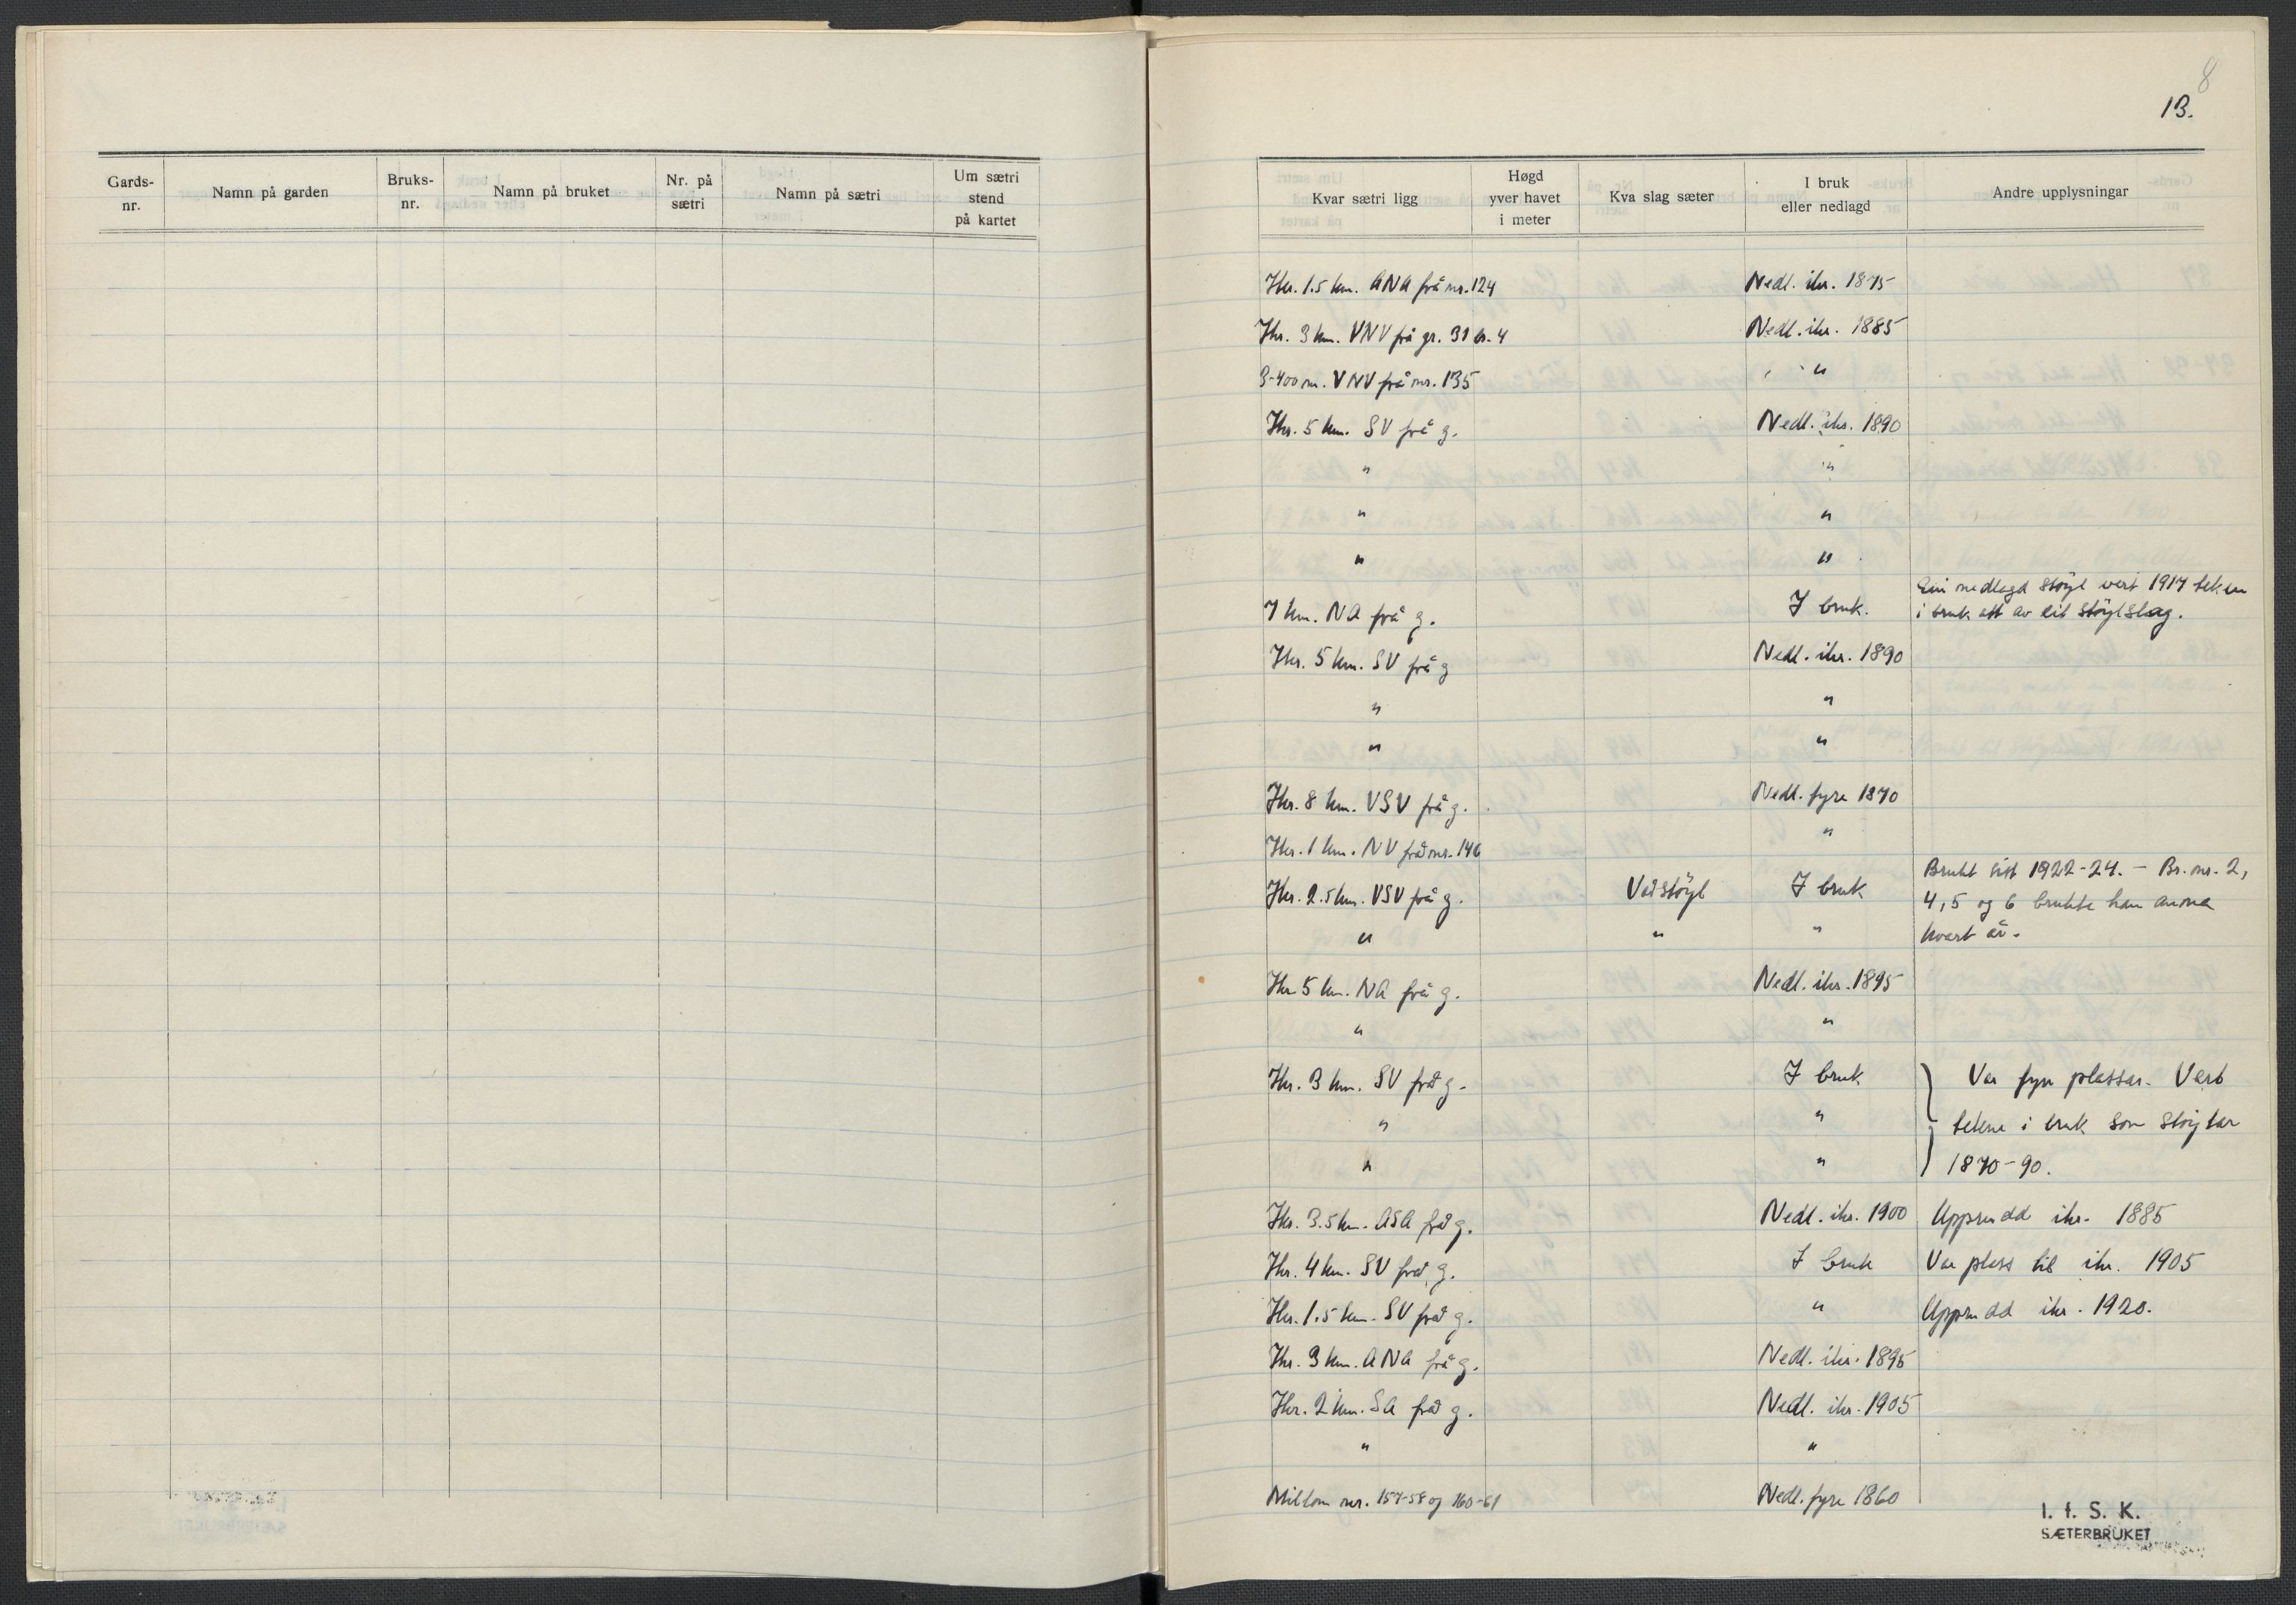 8
13.
Gards-
nr.
Namn på garden
Bruks-
nr.
Namn på bruket
Nr. på
sætri
Namn på sætri
Um sætri
stend
på kartet
Kvar sætri ligg
Høgd
yver havet
i meter
Kva slag sæter
I bruk
eller nedlagd
Andre upplysningar
Ikr. 1.5 km. ANA frå nr. 124 Nedl. ikr. 1875
Ikr. 3 km. VNV frå gr. 31 br. 4 Nedl. ikr. 1885
3-400 m. VNV frå nr. 135 "
Ikr. 5 km. SV frå g. Nedl. ikr. 1890
" "
" "
" "
7 km. NA frå g. I bruk. Ein nedlagd støyl vert 1917 teken
i bruk att av eit støylslag.
Ikr. 5 km. SV frå g Nedl. ikr. 1890
" "
" "
Ikr. 8 km. VSV frå g. Nedl. fyre 1870
Ikr. 1 km. NV frå nr. 146 "
Ikr. 2.5 km. VSV frå g. Vårstöyl I bruk Brukt sist 1922-24. - Br. nr. 2,
4, 5 og 6 brukte han anna
" " " kvart år.
Ikr 5 km. NA frå g. Nedl. ikr. 1895
" "
Ikr. 3 km. SV frå g. I bruk Var fyrr plassar. Vart
" " tekne i bruk som støylar
" " 1870-90.
Ikr. 3.5 km. ASA frå g. Nedl. ikr. 1900 Upprudd ikr. 1885
Ikr. 4 km. SV frå g. I bruk Var plass til ikr. 1905
Ikr. 1.5 km. SV frå g. " Upprudd ikr. 1920.
Ikr. 3 km. ANA frå g. Nedl. ikr. 1895
Ikr. 2 km. SA frå g. Nedl. ikr. 1905
" "
Millom nr. 157-58 og 160-61 Nedl. fyre 1860
I. f. S. K.
SÆTERBRUKET